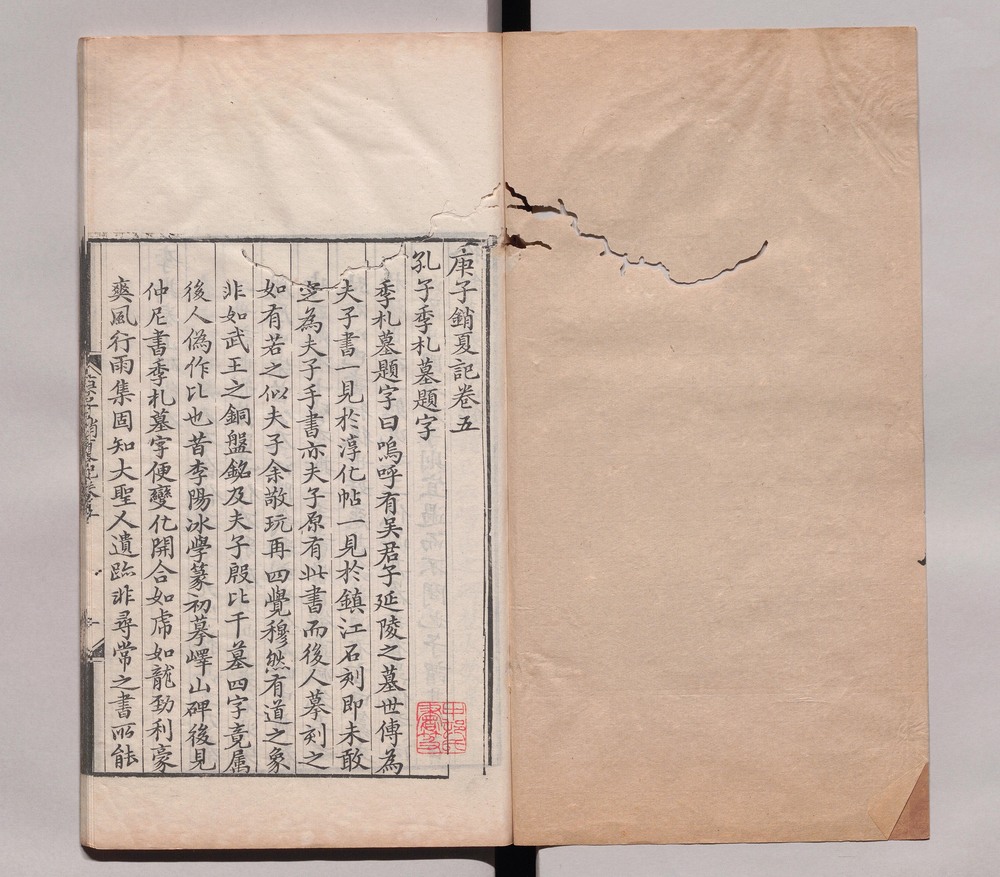 庚子銷夏記卷五
孔子季札墓題字
季札墓題字曰嗚呼有吳君子延陵之墓世傳為
夫子書一見於淳化帖一見於鎮江石刻即未敢
定為夫子手書亦夫子原有此書而後人摹刻之
如有若之似夫子余敬玩再四覺穆然有道之象
非如武王之銅盤銘及夫子殷比干墓四字竟属
後人偽作比也昔李陽冰學篆初摹嶧山碑後見
仲尼書季札墓字便變化開合如虎如龍勁利豪
爽風行雨集固知大聖人遺跡非尋常之書所能